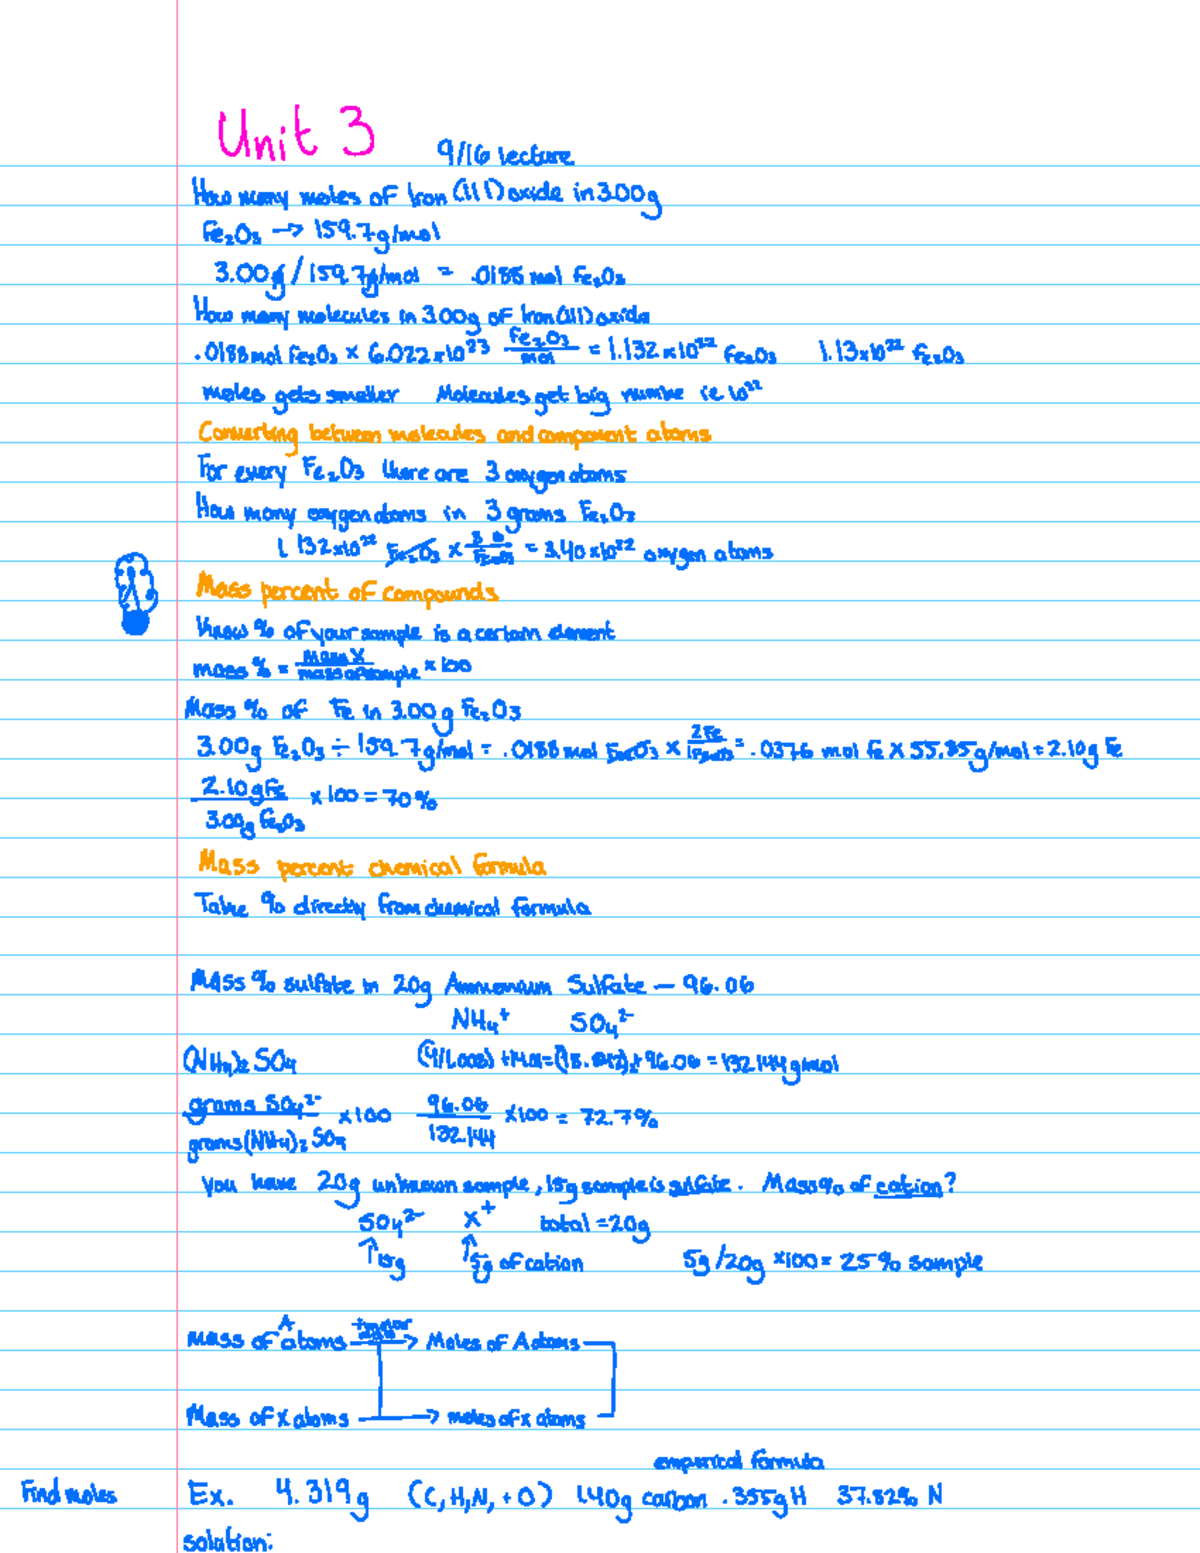 Unit 3 9/16 lecture
How many moles of Iron (III) oxide in 3.00g
Fe₂O₃ → 159.7g/mol
3.00g / 159.7g/mol = .0188 mol Fe₂O₃
How many molecules in 3.00g of Iron(III) oxide
.0188 mol Fe₂O₃ × 6.022×10²³ Fe₂O₃/mol = 1.132×10²² Fe₂O₃ 1.13×10²² Fe₂O₃
moles gets smaller Molecules get big numbe ie 10²²
Converting between molecules and component atoms
For every Fe₂O₃ there are 3 oxygen atoms
How many oxygen atoms in 3 grams Fe₂O₃
1.132×10²² Fe₂O₃ × 3 O/Fe₂O₃ = 3.40×10²² oxygen atoms
Mass percent of compounds
Know % of your sample is a certain element
mass % = Mass X/mass of sample × 100
Mass % of Fe in 3.00g Fe₂O₃
3.00g Fe₂O₃ ÷ 159.7g/mol = .0188 mol Fe₂O₃ × 2Fe/1Fe₂O₃ = .0376 mol Fe × 55.85g/mol = 2.10g Fe
2.10gFe/3.00g Fe₂O₃ × 100 = 70%
Mass percent chemical formula
Take % directly from chemical formula
Mass % sulfate in 20g Ammonium Sulfate – 96.06
NH₄⁺ SO₄²⁻
(NH₄)₂ SO₄ +96.06 = 132.144gmol
grams SO₄²⁻/grams(NH₄)₂SO₄ ×100 96.06/132.144 ×100 = 72.7%
you have 20g unknown sample, 15g sample is sulfate. Mass % of cation?
SO₄²⁻ X⁺ total = 20g
↑15g ↑5g of cation 5g/20g ×100 = 25% sample
Mass of A atoms → Moles of A atoms
Mass of x atoms → moles of x atoms
empirical formula
Find moles Ex. 4.319g (C, H, N, + O) 1.40g carbon .355g H 37.82% N
solution: